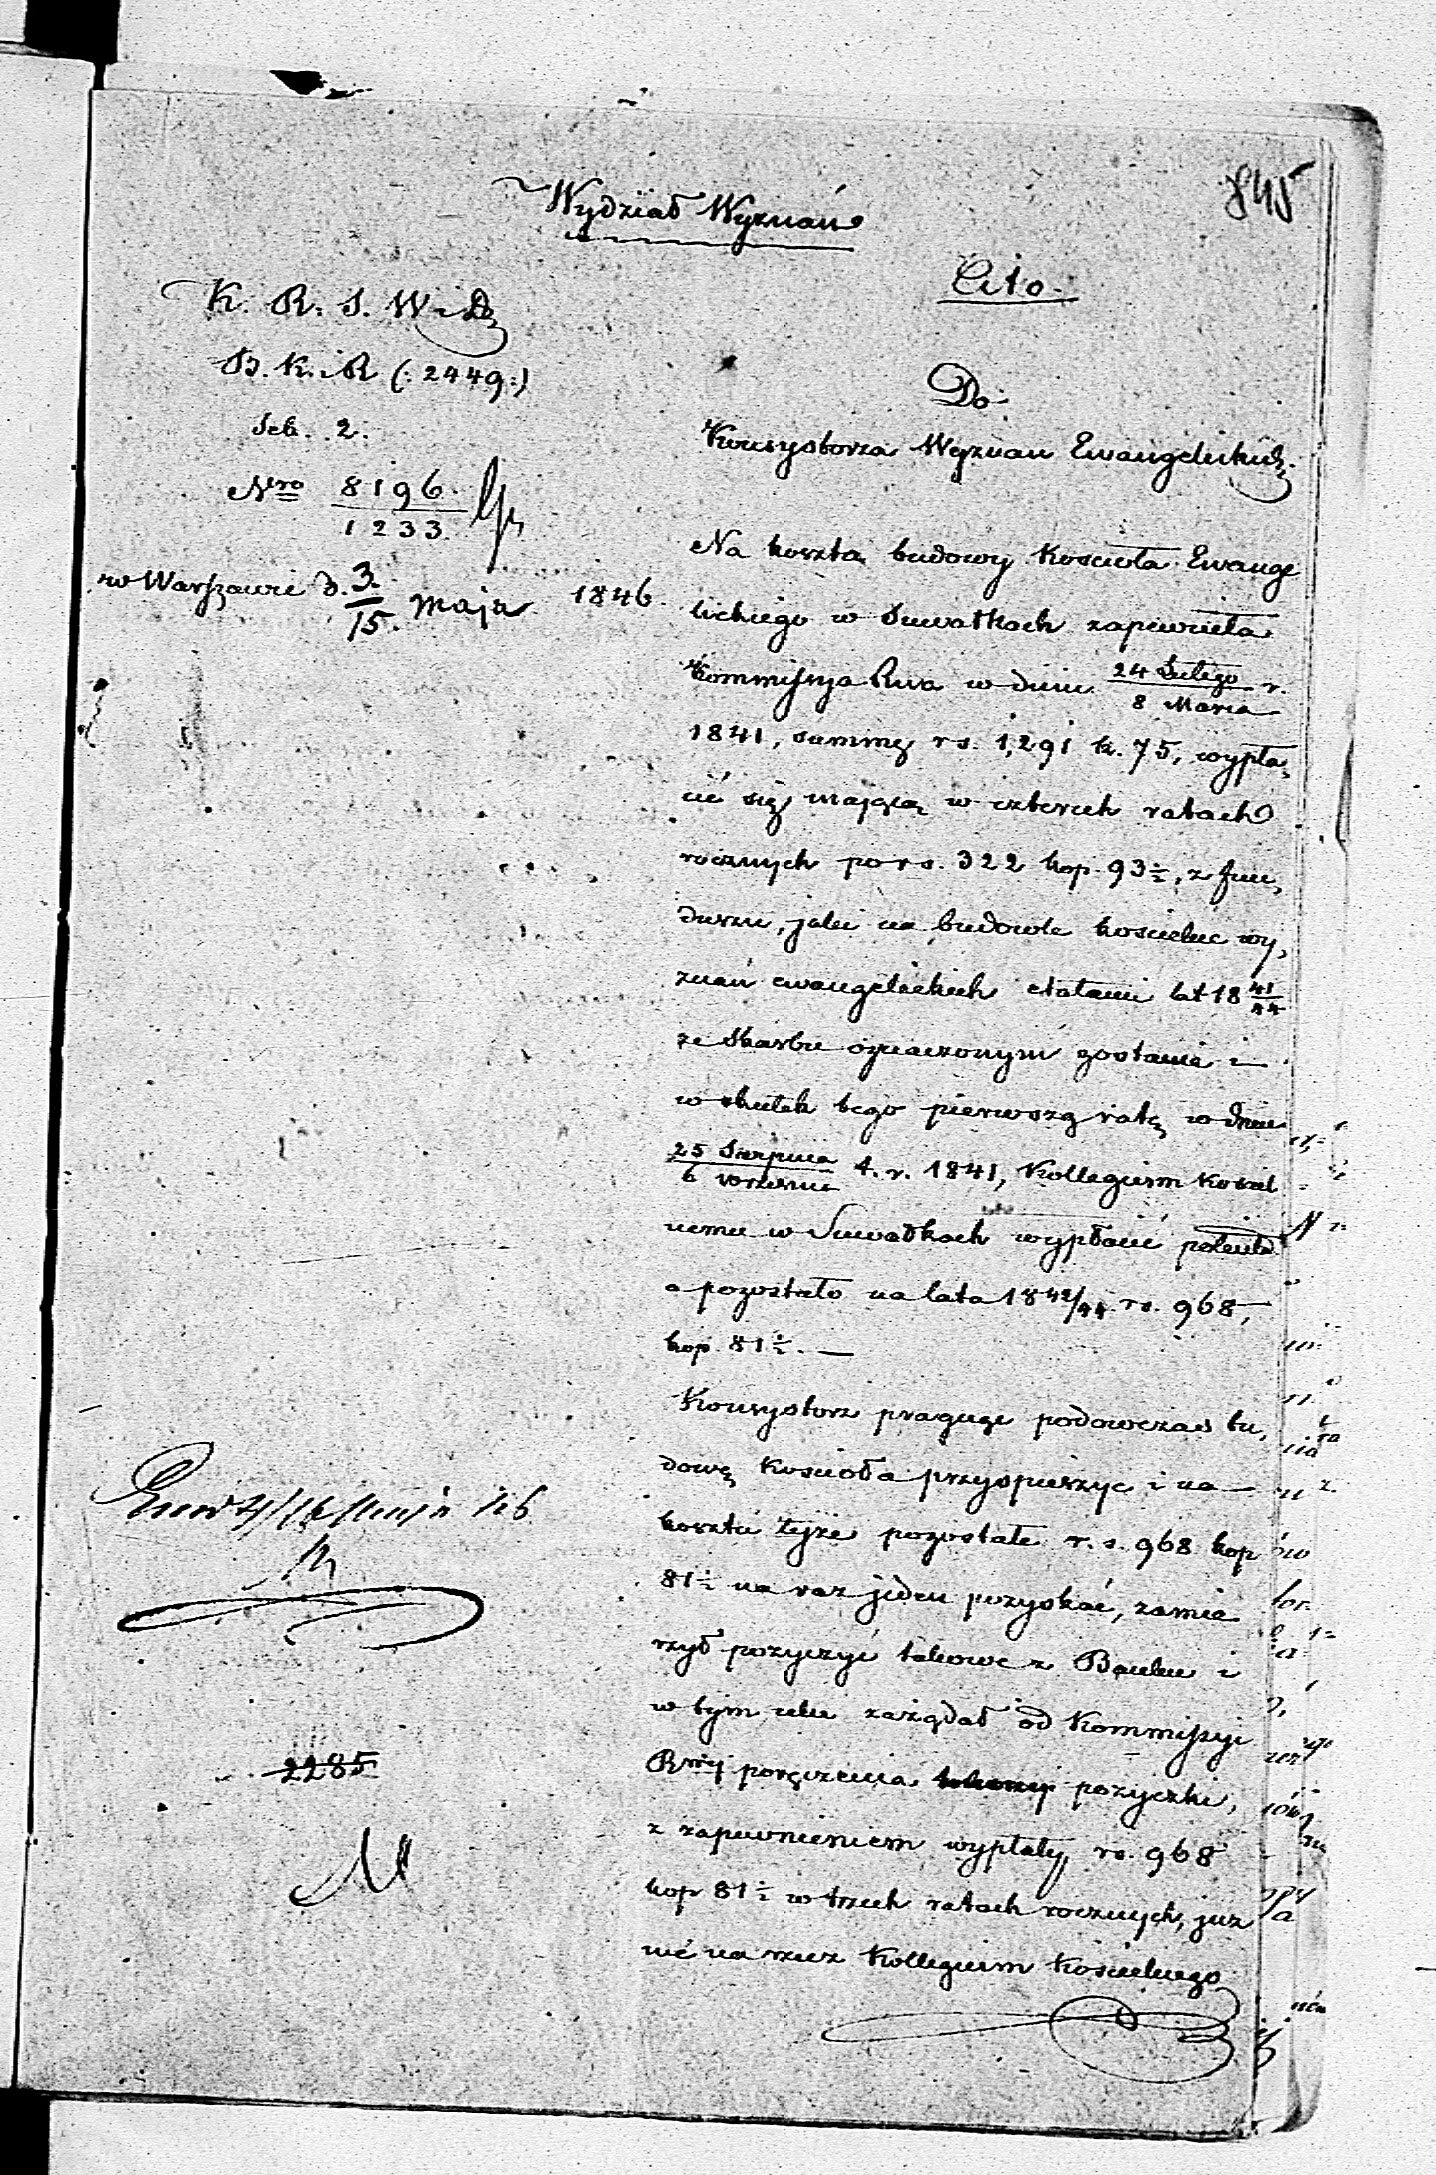 845
Wydział Wyznań
Cito.
K. R. S. W. i D.
B. K. i R (:2449:)
Sek. 2.
Nro 8196/1233.
w Warszawie d. 3./15. maja 1846.
Do
Konsystorza Wyznań Ewangelickich.
Na koszta budowy Kościoła Ewange
lickiego w Suwałkach zapewniła
Kommissya Rwa w dniu 24 Lutego/8 Marca r.
1841, summę rs. 1,291 k. 75, wypła,
cić się mającą w czterech ratach
rocznych po rs. 322 kop. 93½, z fun,
duszu, jaki na budowle kościelne wy,
znań ewangelickich etatami lat 18 41/44
ze Skarbu oznaczonym zostanie i
w skutek tego pierwszą ratę w dniu
25 Sierpnia/6 Września t. r. 1841, Kollegium Kościel
nemu w Suwałkach wypłacić poleciła
a pozostało na lata 18 42/44 rs. 968,
kop. 81½. —
Konsystorz pragnąc podówczas bu,
dowę Kościoła przyspieszyc i na
koszta tejże pozostałe r. s. 968 kop
81½ na raz jeden pozyskać, zamie
rzył pozyczyć takowe z Banku i
w tym celu zażądał od Kommissyi
Rwéj poręczenia pożyczki,
z zapewnieniem wypłaty rs. 968
kop 81½ w trzech ratach rocznych, juz
nié na rzecz Kollegium Kościelnego
2285